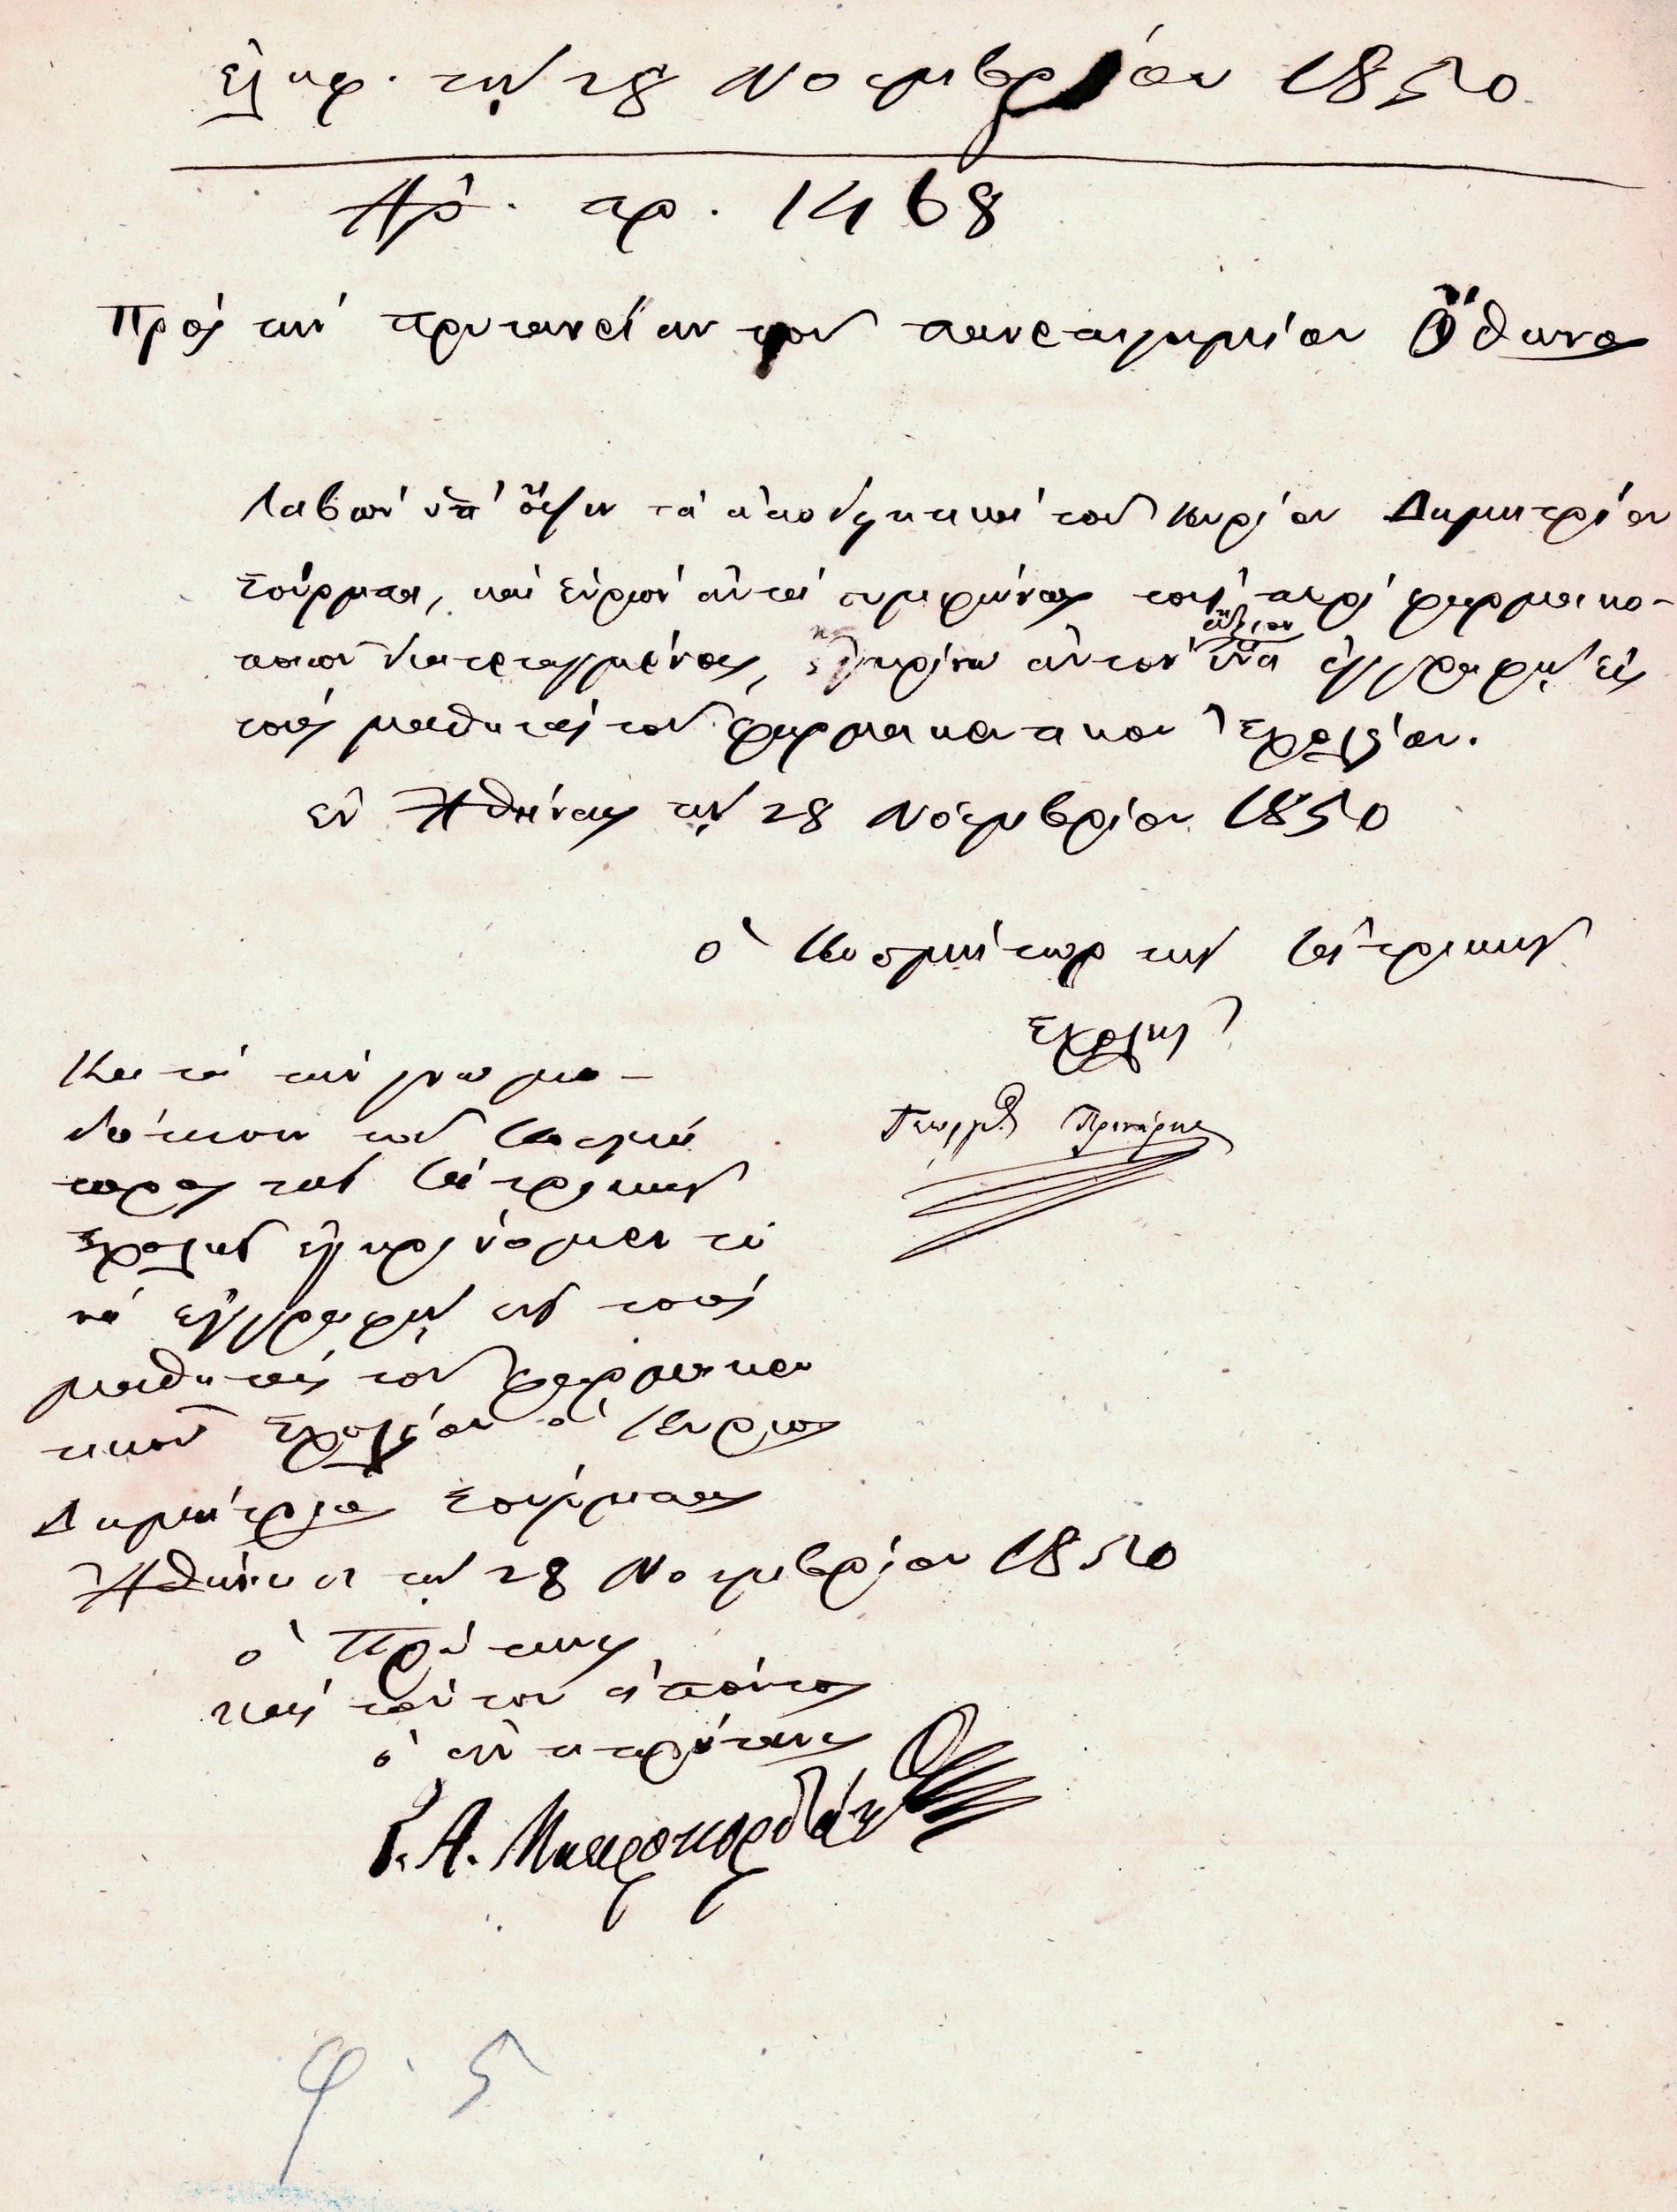 ἐλήφ. τῇ 28 Νοεμβρίου 1850
Ἀρ. πρ. 1468
Πρὸς τὴν πρυτανείαν τοῦ πανεπιστημίου Ὄθωνος
Λαβὼν ὑπ' ὄψιν τὰ ἀποδεικτικὰ τοῦ Κυρίου Δημητρίου
Σούρμπα, καὶ εὑρὼν αὐτὰ συμφώνως τοῖς περὶ φαρμακο-
ποιῶν διατεταγμένοις, ἐγκρίνω αὐτὸν ἄξιον ἵνα ἐγγραφῇ εἰς
τοὺς μαθητὰς τοῦ φαρμακευτικοῦ Σχολείου.
ἐν Ἀθήναις τῇ 28 Νοεμβρίου 1850
ὁ Κοσμήτωρ τῆς Ἰατρικῆς
Σχολῆς
Γεώργιος Πρινάρης
Κατὰ τὴν γνωμο-
δότησιν τοῦ Κοσμή
τορος τῆς Ἰατρικῆς
Σχολῆς ἐγκρίνομεν
νὰ ἐγγραφῇ εἰς τοὺς
μαθητὰς τοῦ φαρμακευ
τικοῦ Σχολείου ὁ Κύριος
Δημήτριος Σούρμπας
Ἀθήνησι τῇ 28 Νοεμβρίου 1850
ὁ Πρύτανις
καὶ τούτου ἀπόντος
ὁ ἀντιπρύτανις
Γ. Α. Μαυροκορδάτος
φ. 5